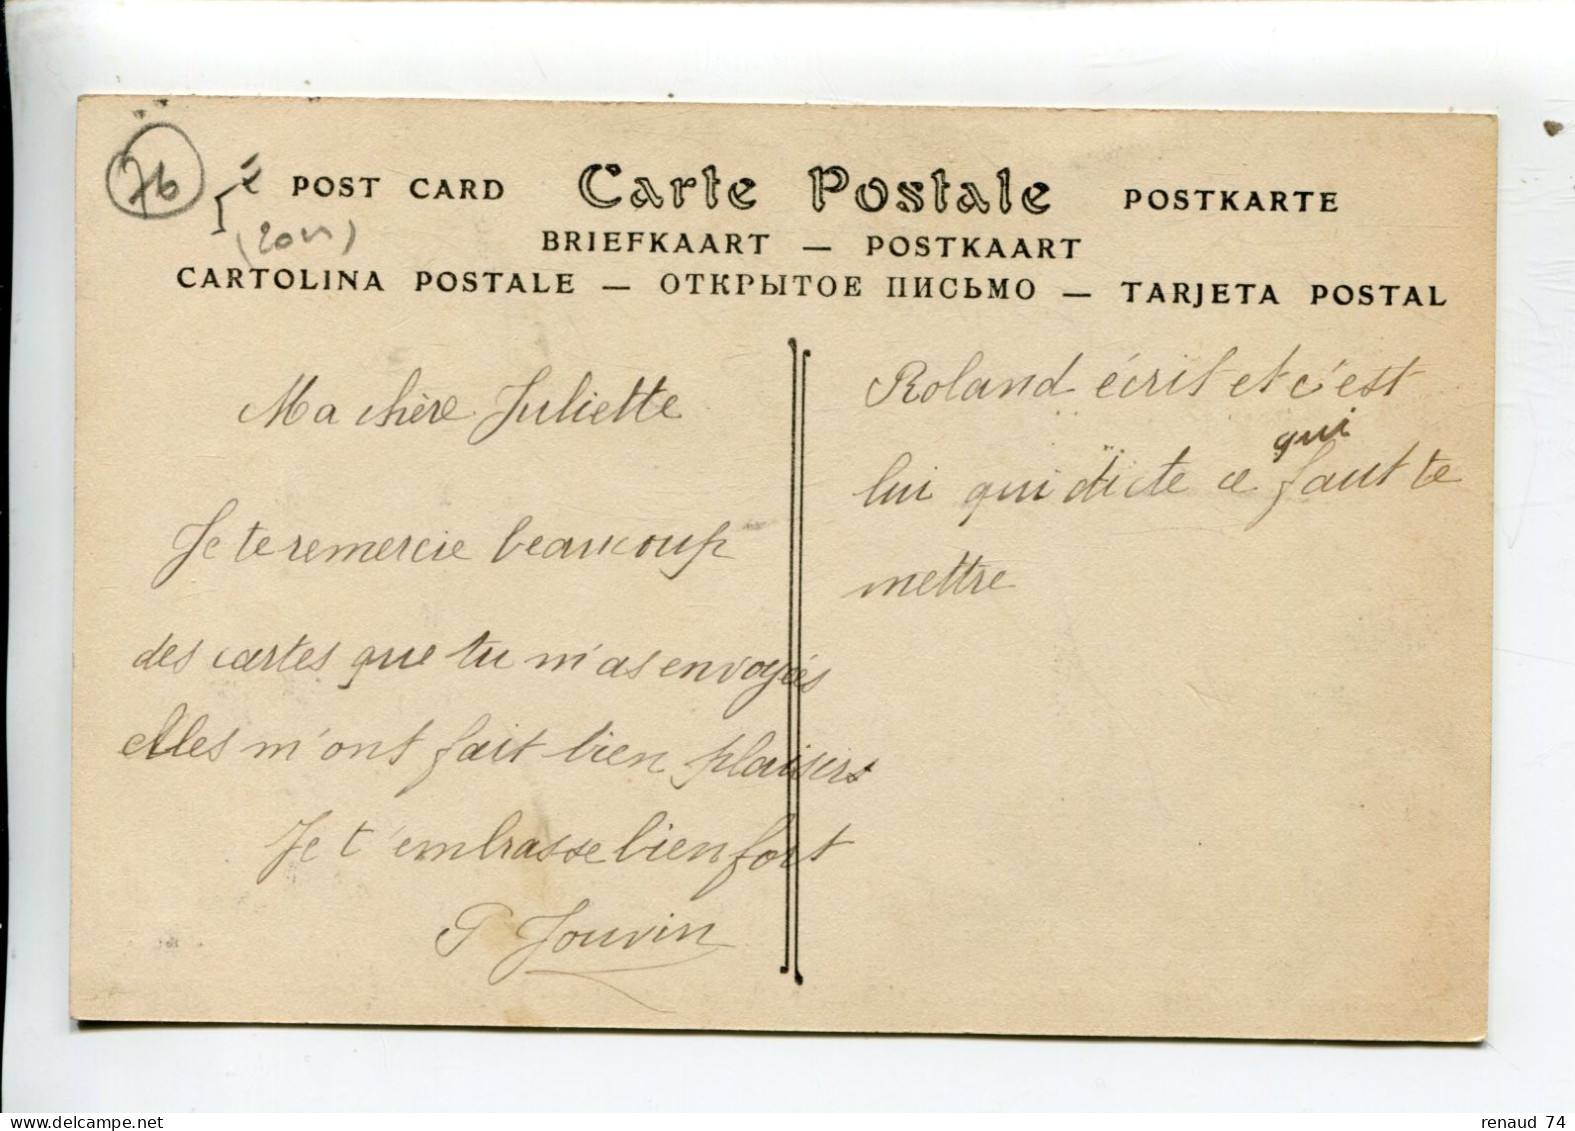 76
POST CARD Carte Postale POSTKARTE
BRIEFKAART — POSTKAART
CARTOLINA POSTALE — ОТКРЫТОЕ ПИСЬМО — TARJETA POSTAL
Ma chère Juliette
Je te remercie beaucoup
des cartes que tu m'as envoyés
elles m'ont fait bien plaisirs
Je t'embrasse bien fort
P Jouvin
Roland écrit et c'est
lui qui dicte ce qui faut te
mettre
renaud 74